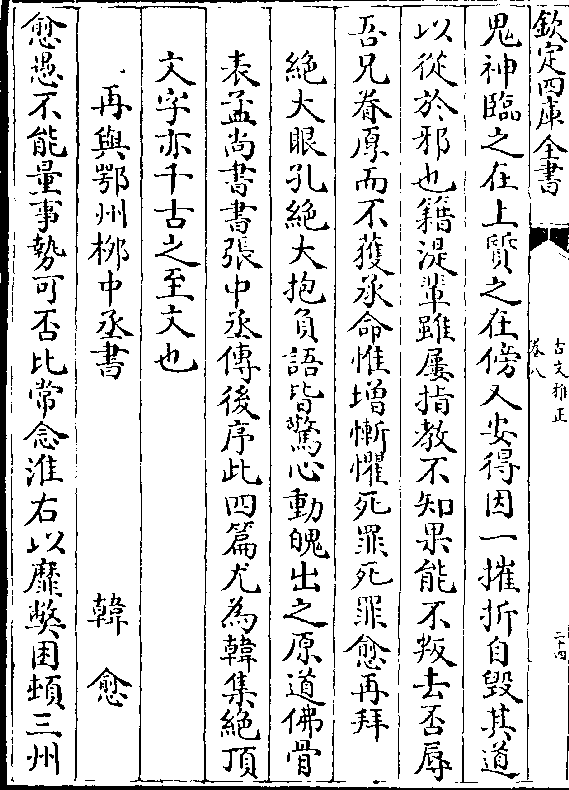 欽定四庫全書
古文雅正
卷八
二十四
鬼神臨之在上質之在傍又安得因一摧折自毀其道
以從於邪也籍湜輩雖屢指教不知果能不叛去否辱
吾兄眷厚而不獲承命惟增慚懼死罪死罪愈再拜
絕大眼孔絕大抱負語皆驚心動魄出之原道佛骨
表孟尚書書張中丞傳後序此四篇尤為韓集絕頂
文字亦千古之至文也
再與鄂州柳中丞書
韓愈
愈愚不能量事勢可否比常念淮右以靡獘困頓三州